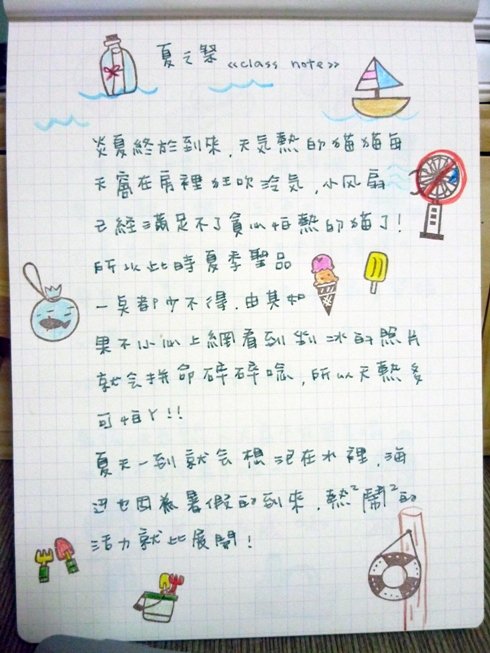 夏之祭 《class note》
炎夏終於到來,天氣熱的貓貓每
天窩在房裡狂吹冷氣,小风扇
已經滿足不了貪心怕熱的貓了!
所以此時夏季聖品
一臭都少不得,由其如
果不小心上網看到剉冰的照片
就会拼命碎碎唸,所以天熱多
可怕丫!!
夏天一到就会想泡在水裡,海
边也因為暑假的到來,熱²鬧²的
活力就此展開!